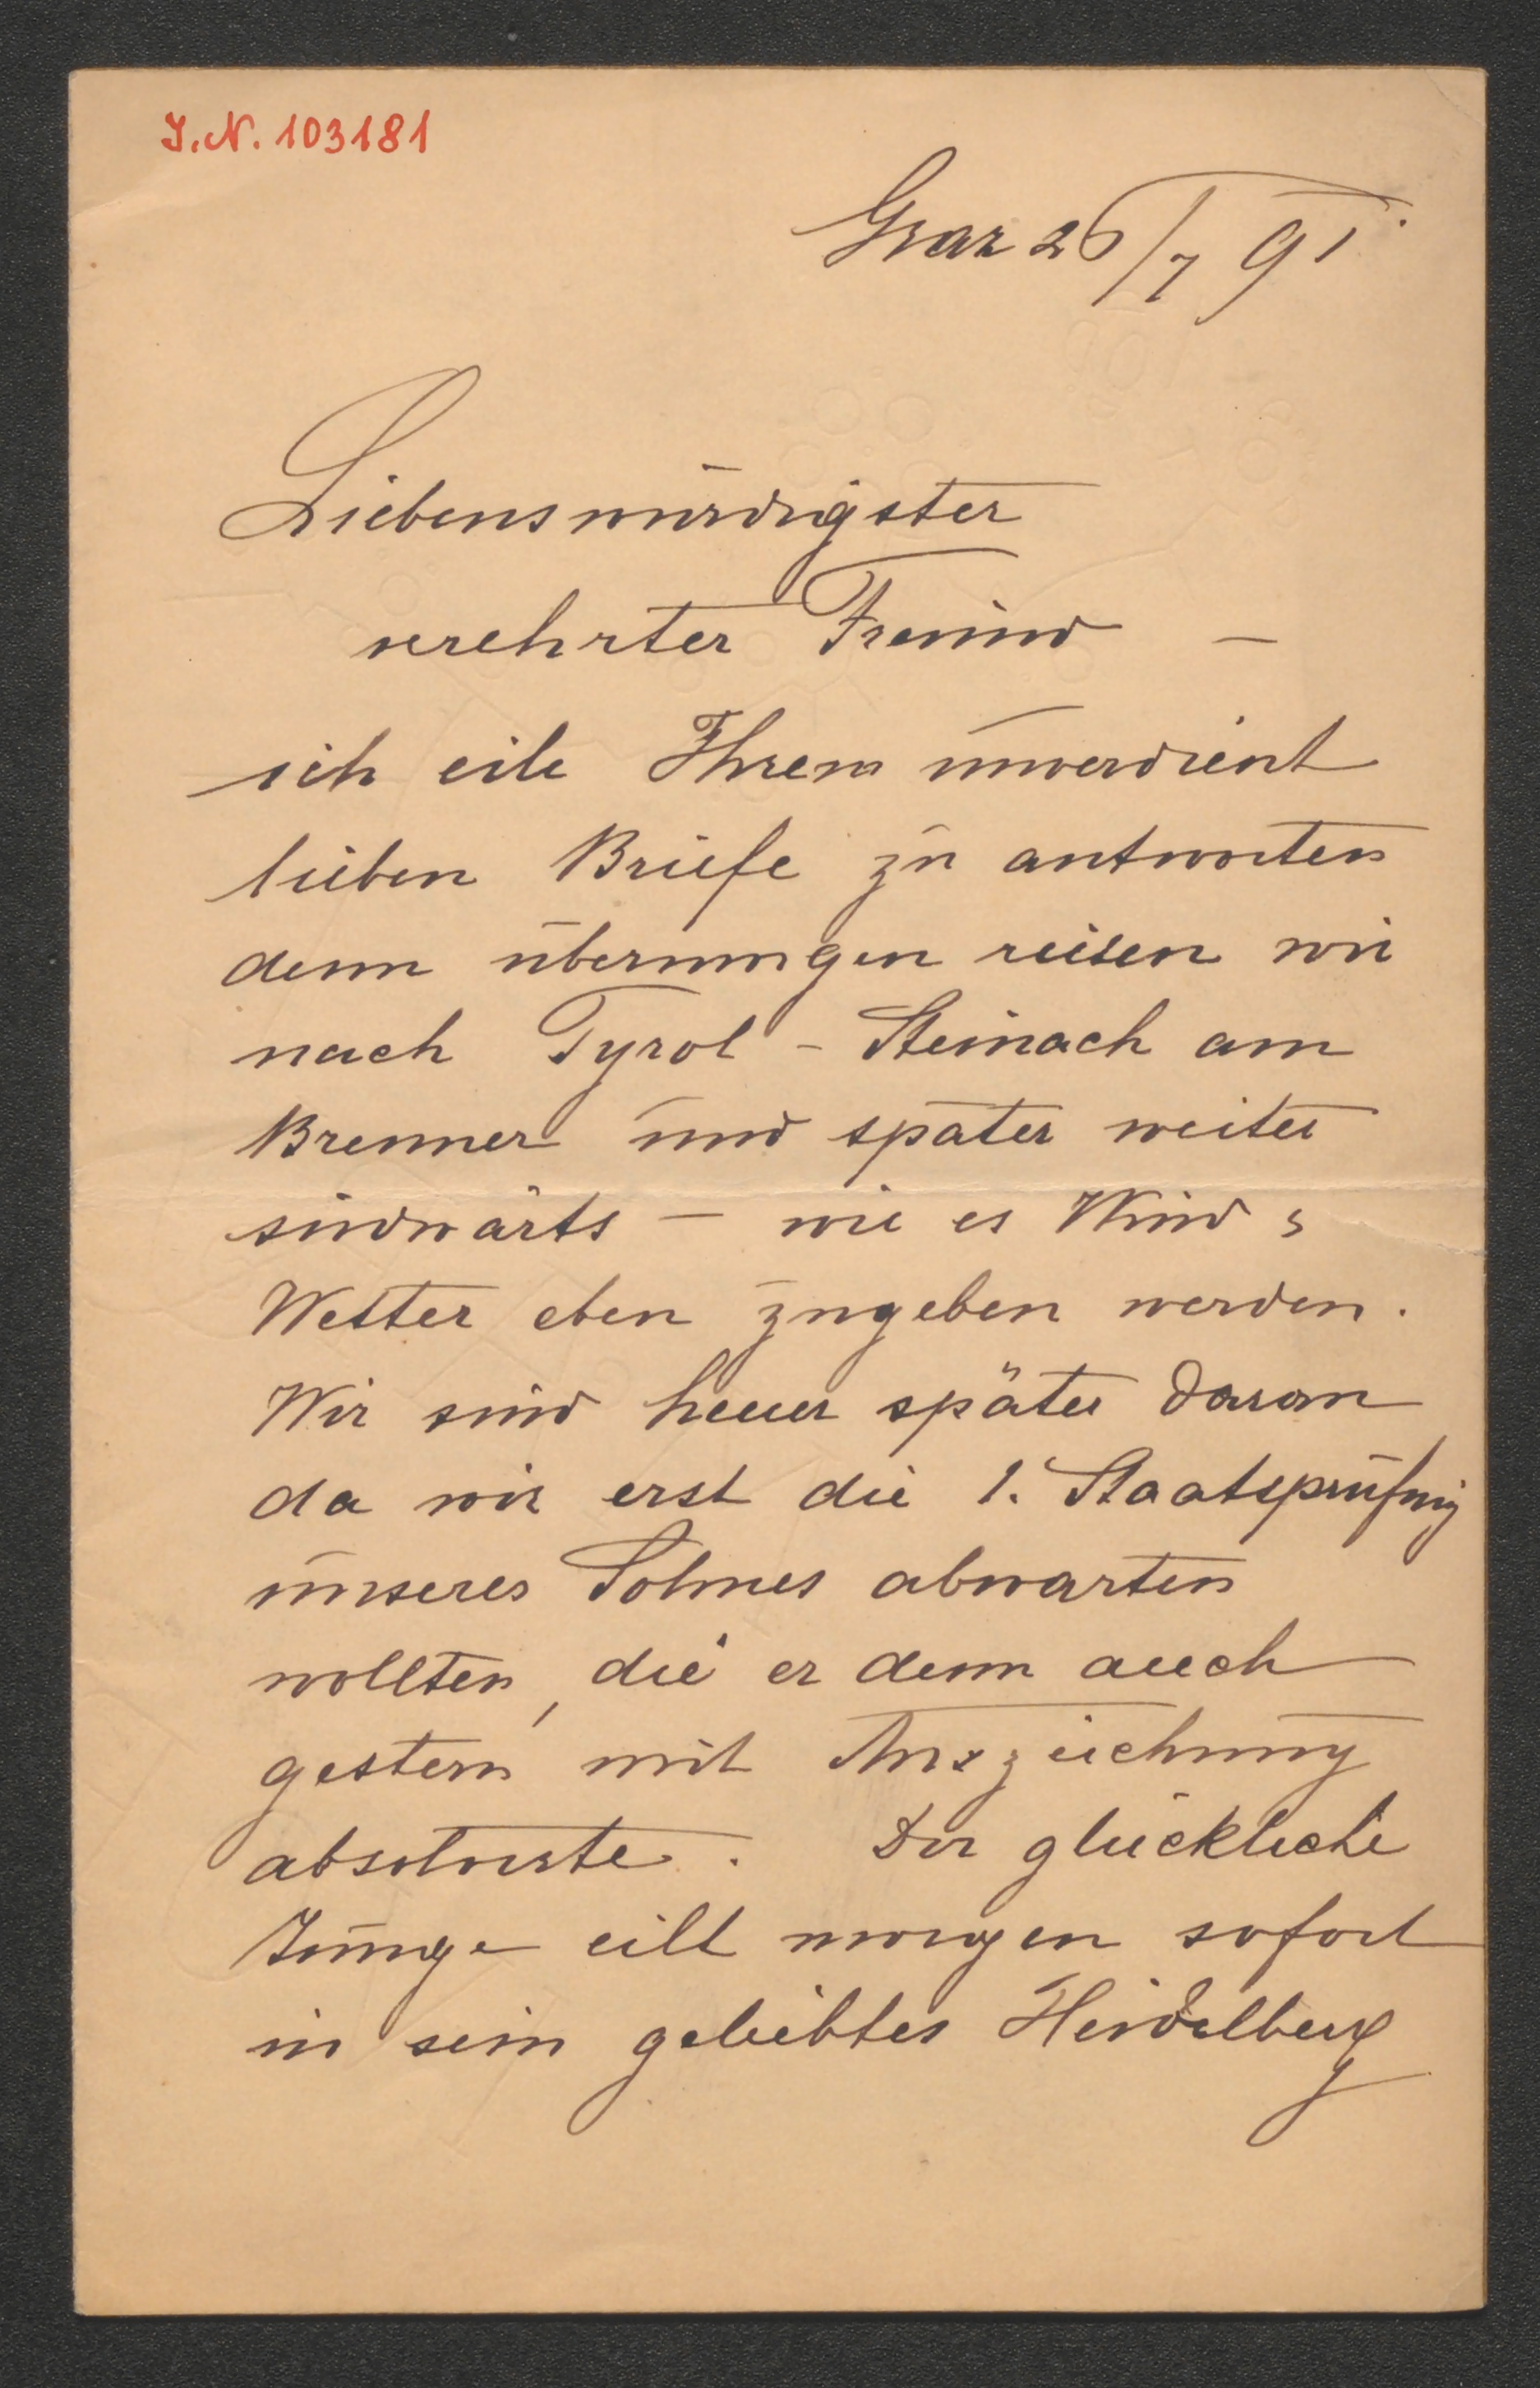 J.N. 103181
Graz 26/7 91.
Liebenswürdigster
verehrter Freund –
ich eile Ihrem unverdient
lieben Briefe zu antworten
denn übermorgen reisen wir
nach Tyrol – Steinach am
Brenner und später weiter
südwärts – wie es Wind &
Wetter eben zugeben werden.
Wir sind heuer später daran
da wir erst die 1. Staatsprüfung
unseres Sohnes abwarten
wollten, die er denn auch
gestern mit Auszeichnung
absolvirte. Der glückliche
Junge eilt morgen sofort
in sein geliebtes Heidelberg